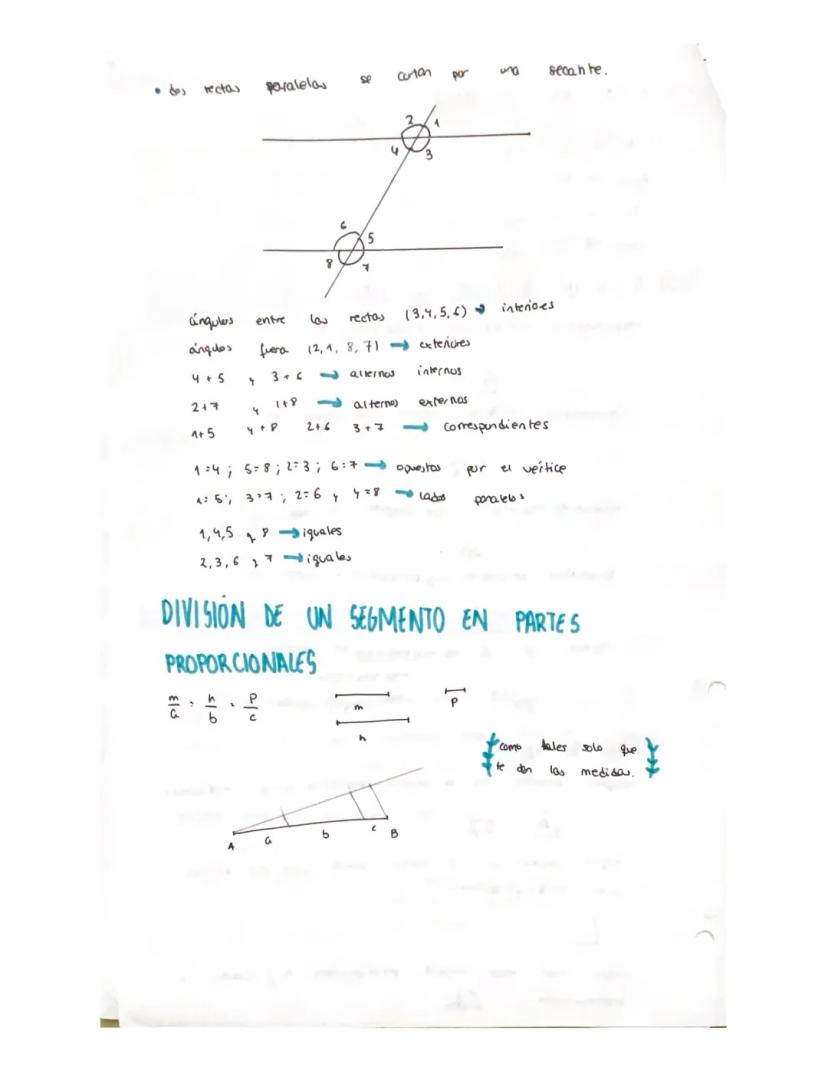 • dos rectas paralelas se cortan por una secante.
2 1
4 3
6 5
8 7
ángulos entre las rectas (3,4,5,6) → interiores
ángulos fuera (2,1,8,7) → exteriores
4+5 y 3+6 → alternos internos
2+7 y 1+8 → alternos externos
1+5 4+8 2+6 3+7 → correspondientes
1=4; 5=8; 2=3; 6=7 → opuestos por el vértice
1=5; 3=7; 2=6 y 4=8 → lados paralelos
1,4,5 y 8 → iguales
2,3,6 y 7 → iguales
DIVISIÓN DE UN SEGMENTO EN PARTES
PROPORCIONALES
m/a = n/b = p/c
m
n
p
como tales solo que
te dan las medidas.
A a b c B